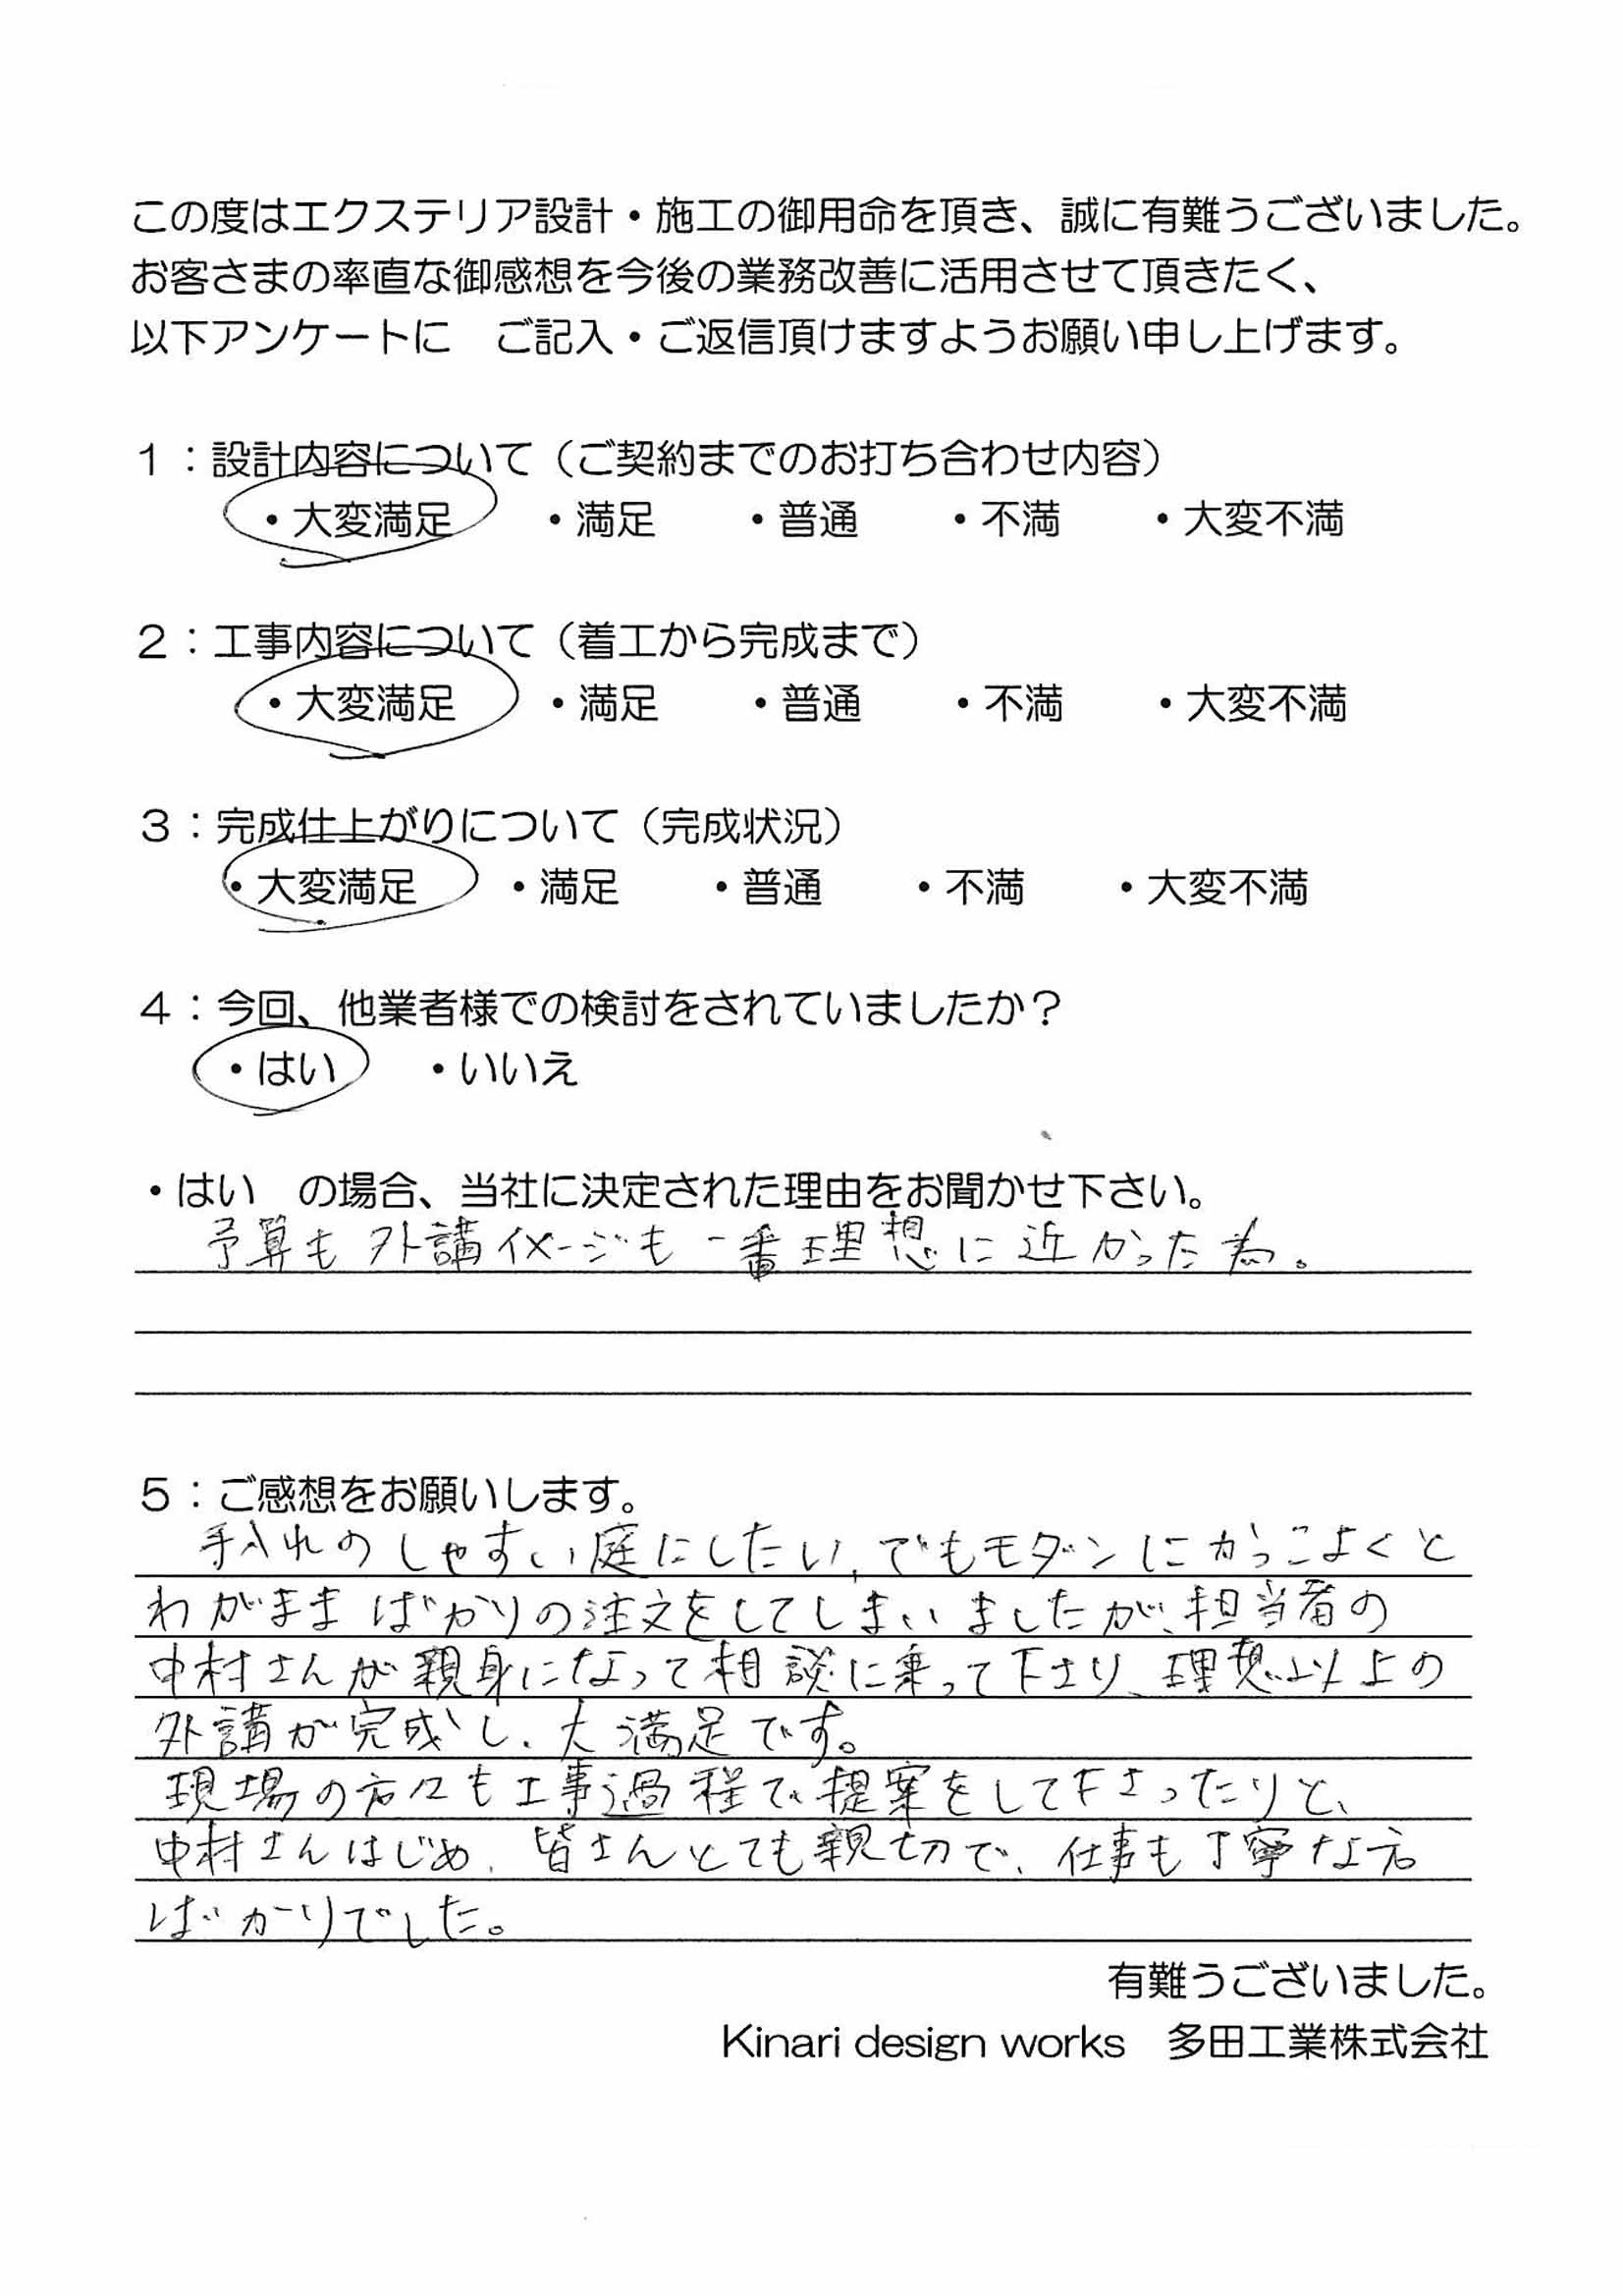 この度はエクステリア設計・施工の御用命を頂き、誠に有難うございました。
お客さまの率直な御感想を今後の業務改善に活用させて頂きたく、
以下アンケートに　ご記入・ご返信頂けますようお願い申し上げます。
１：設計内容について（ご契約までのお打ち合わせ内容）
・大変満足　・満足　・普通　・不満　・大変不満
２：工事内容について（着工から完成まで）
・大変満足　・満足　・普通　・不満　・大変不満
３：完成仕上がりについて（完成状況）
・大変満足　・満足　・普通　・不満　・大変不満
４：今回、他業者様での検討をされていましたか？
・はい　・いいえ
・はい　の場合、当社に決定された理由をお聞かせ下さい。
予算も外講イメージも一番理想に近かった為。
５：ご感想をお願いします。
手入れのしやすい庭にしたい、でもモダンにかっこよくと
わがままばかりの注文をしてしまいましたが、担当者の
中村さんが親身になって相談に乗って下さり、理想以上の
外講が完成し、大満足です。
現場の方々も工事過程で提案をして下さったりと、
中村さんはじめ、皆さんとても親切で、仕事も丁寧な方
ばかりでした。
有難うございました。
Kinari design works　多田工業株式会社